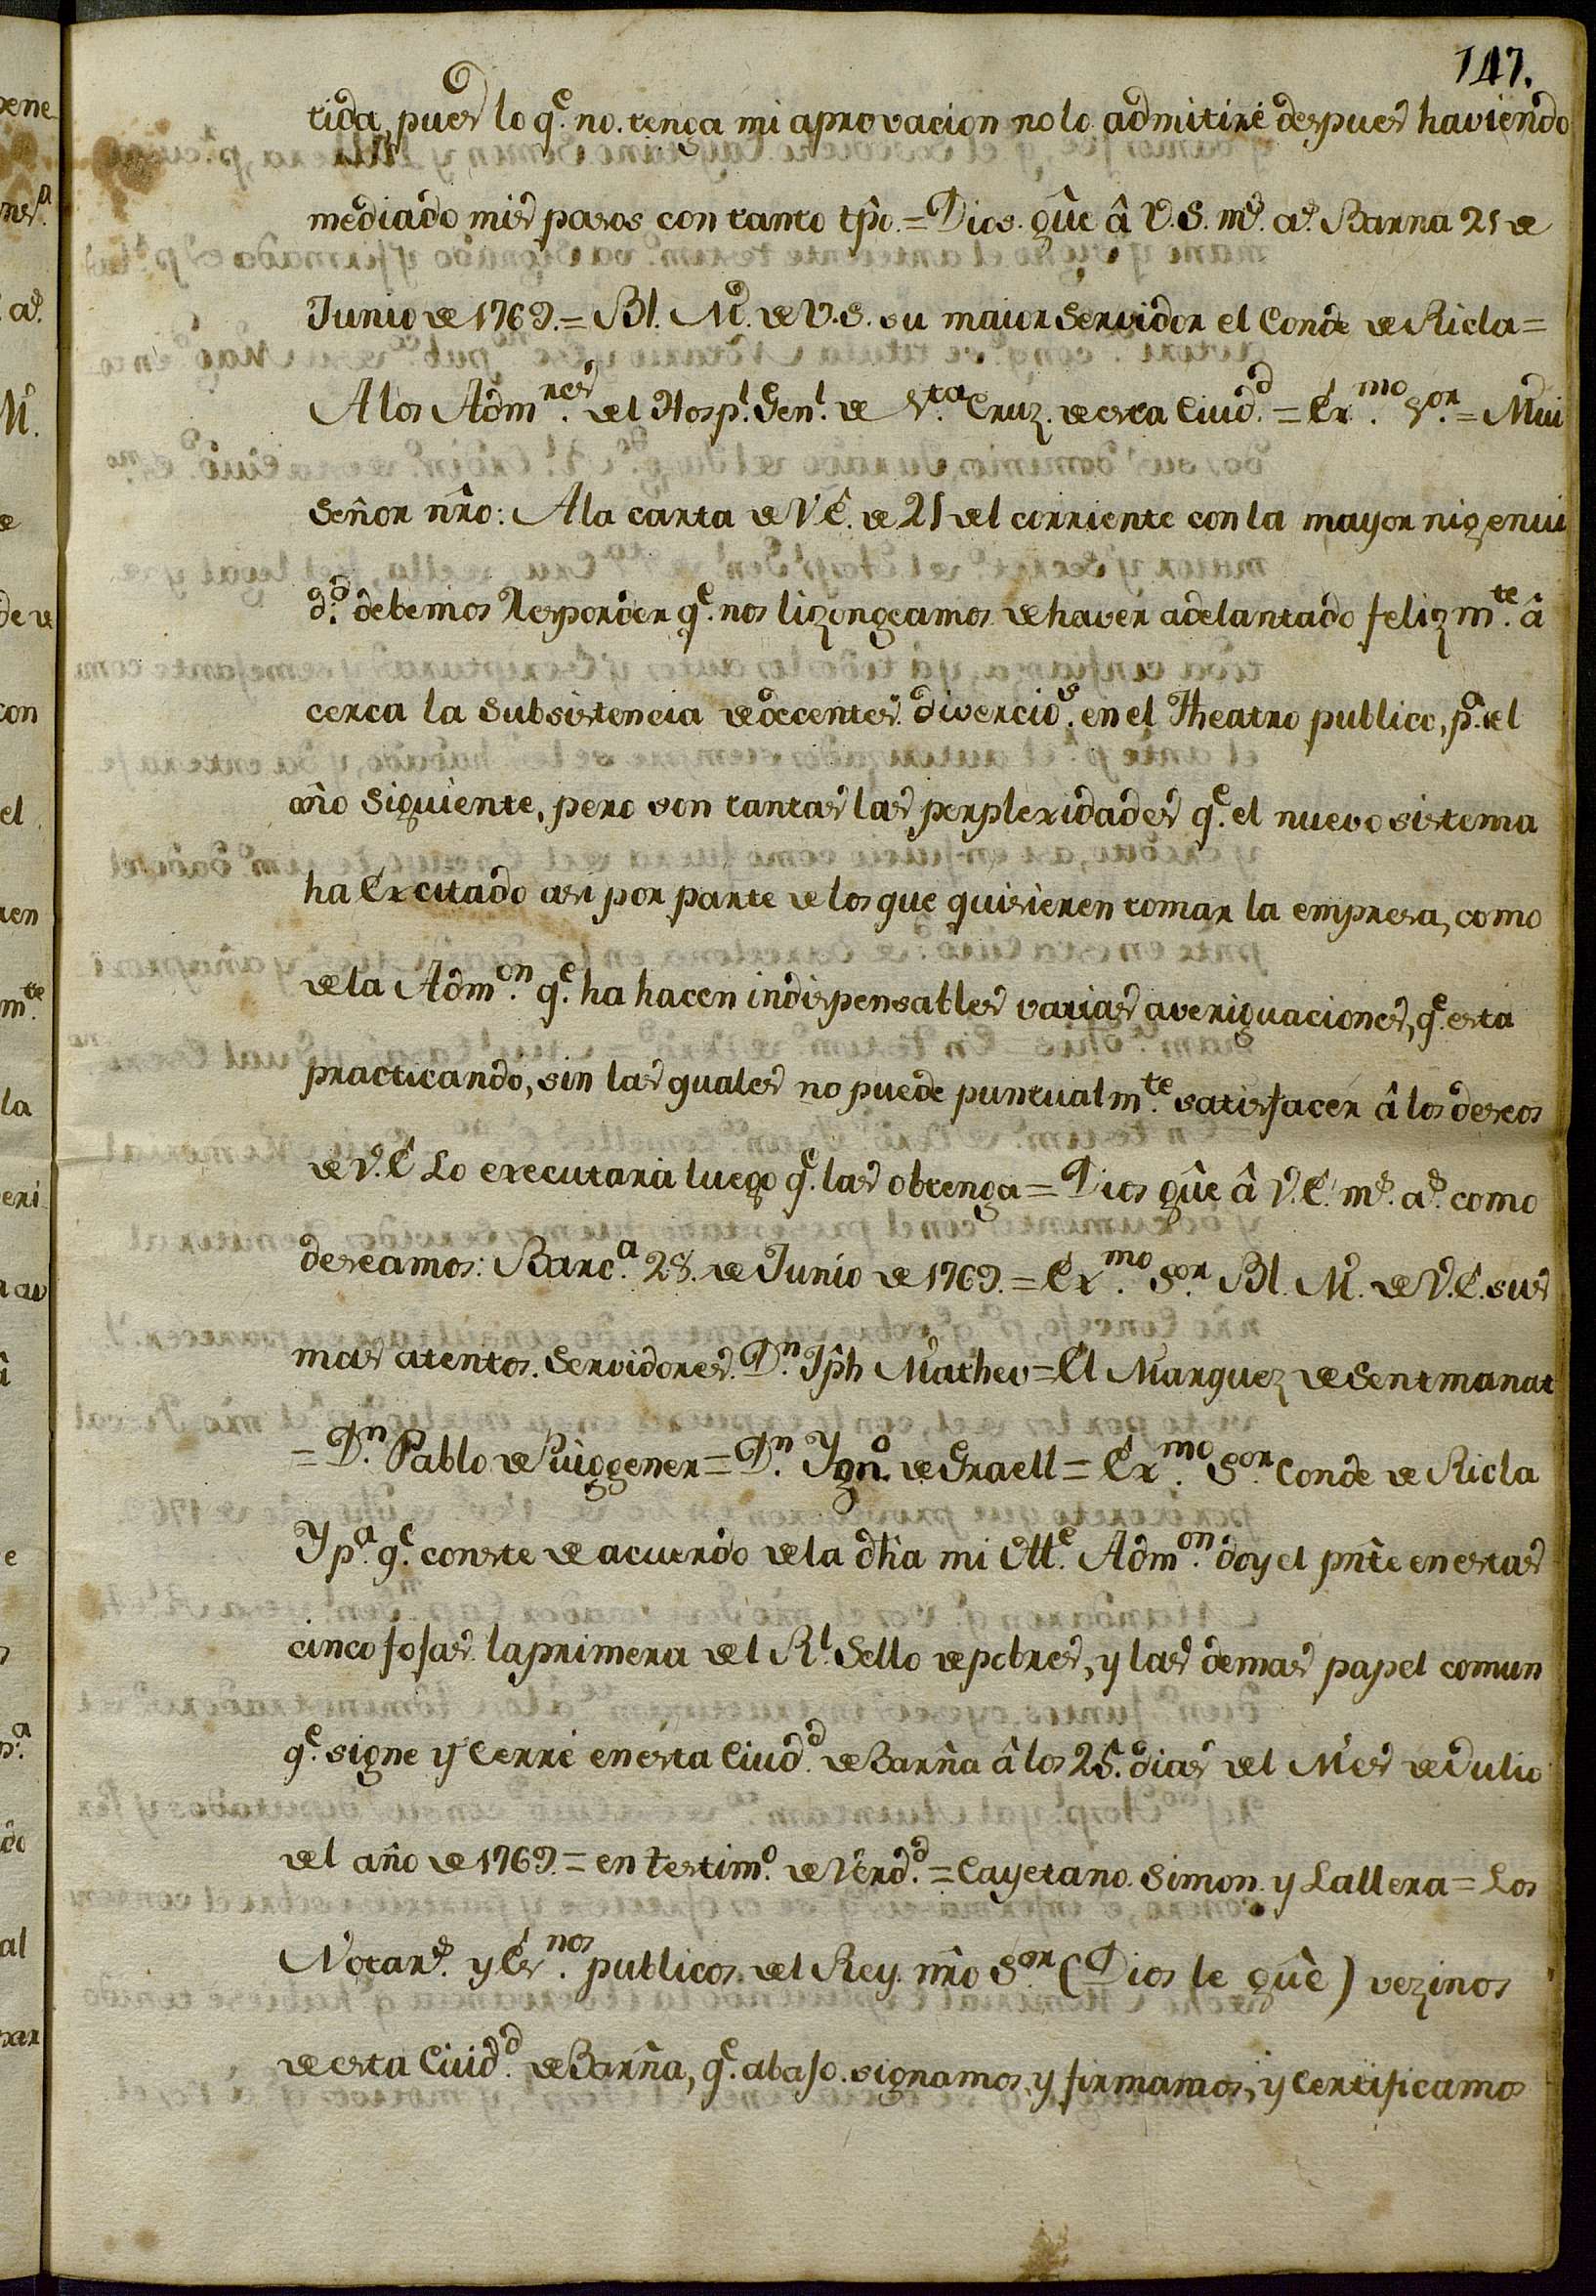 147.
tida, pues lo q.e no tenga mi aprovacion no lo admitiré despues haviendo
mediado mis pasos con tanto tpô. = Dios gûe â V.S. m.s a.s Barna 21 de
Junio de 1769. = Bl. M.o de V.S. su maior Servidor el Conde de Ricla =
A los Adm.res del Hosp.l Gen.l de S.ta Cruz de esta Ciud.d = Ex.mo S.or = Mui
Señor nr̂o: A la carta de V.E. de 21 del corriente con la mayor nigenui
d.d debemos Responder q.e nos lizongeamos de haver adelantado feliz m.te â
cerca la Subsistencia de decentes divercio.s en el Theatro publico, p.a el
año Siguiente, pero son tantas las perplexidades q.e el nuevo sistema
ha Excitado asi por parte de los que quisieren tomar la empresa, como
de la Adm.on q.e ha hacen indispensables varias averiguaciones, q.e esta
practicando, sin las quales no puede puntualm.te satisfacer â los deseos
de V.E Lo executará luego q.e las obtenga = Dios gûe â V.E. m.s a.s como
deseamos: Barc.a 28. de Junio de 1769. = Ex.mo S.or Bl. M. de V.E. sus
mas atentos Servidores. D.n Jpĥ Matheu = El Marquez de Sentmanat
= D.n Pablo de Puiggener = D.n Ygn.o de Graell = Ex.mo S.or Conde de Ricla
Y p.a q.e conste de acuerdo de la dĥa mi Itt.e Adm.on doy el pnt̂e en estas
cinco fojas la primera del R.l Sello de pobres, y las demas papel comun
q.e signe y Cerré en esta Ciud.d de Barn̂a â los 25. dias del Mes de Julio
del año de 1769. = en testim.o de Verd.d = Cayetano Simon y Lallera = Los
Notar.s y Es.nos publicos del Rey nr̂o S.or (Dios le gûe) vezinos
de esta Ciud.d de Barn̂a, q.e abajo signamos y firmamos, y Certificamos